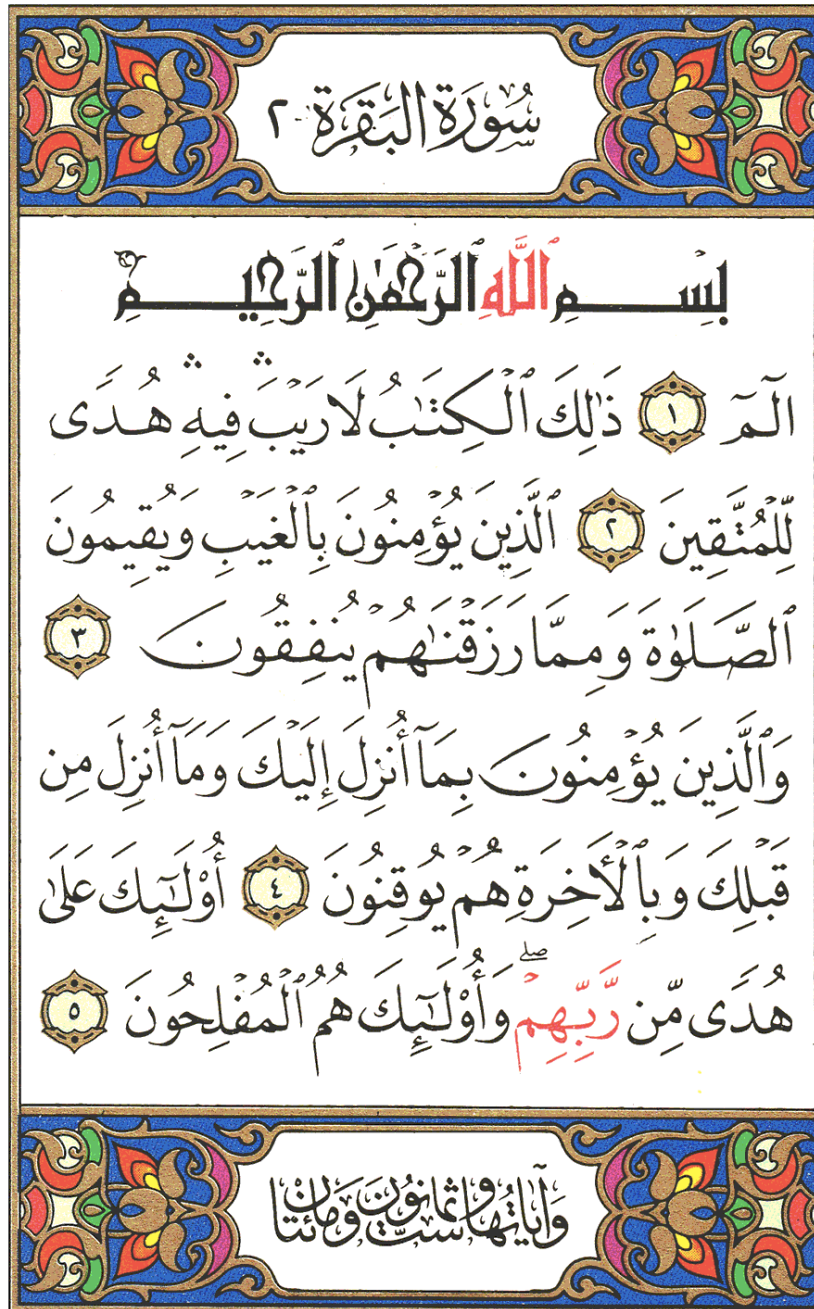 سُورَةُ البَقَرَةِ ٢
بِسْمِ ٱللَّهِ ٱلرَّحْمَٰنِ ٱلرَّحِيمِ
الٓمٓ ١ ذَٰلِكَ ٱلْكِتَٰبُ لَا رَيْبَ ۛ فِيهِ ۛ هُدًى
لِّلْمُتَّقِينَ ٢ ٱلَّذِينَ يُؤْمِنُونَ بِٱلْغَيْبِ وَيُقِيمُونَ
ٱلصَّلَوٰةَ وَمِمَّا رَزَقْنَٰهُمْ يُنفِقُونَ ٣
وَٱلَّذِينَ يُؤْمِنُونَ بِمَآ أُنزِلَ إِلَيْكَ وَمَآ أُنزِلَ مِن
قَبْلِكَ وَبِٱلْأَخِرَةِ هُمْ يُوقِنُونَ ٤ أُو۟لَٰٓئِكَ عَلَىٰ
هُدًى مِّن رَّبِّهِمْ ۖ وَأُو۟لَٰٓئِكَ هُمُ ٱلْمُفْلِحُونَ ٥
وَآيَاتُهَا سِتٌّ وَثَمَانُونَ وَمَائَتَانِ